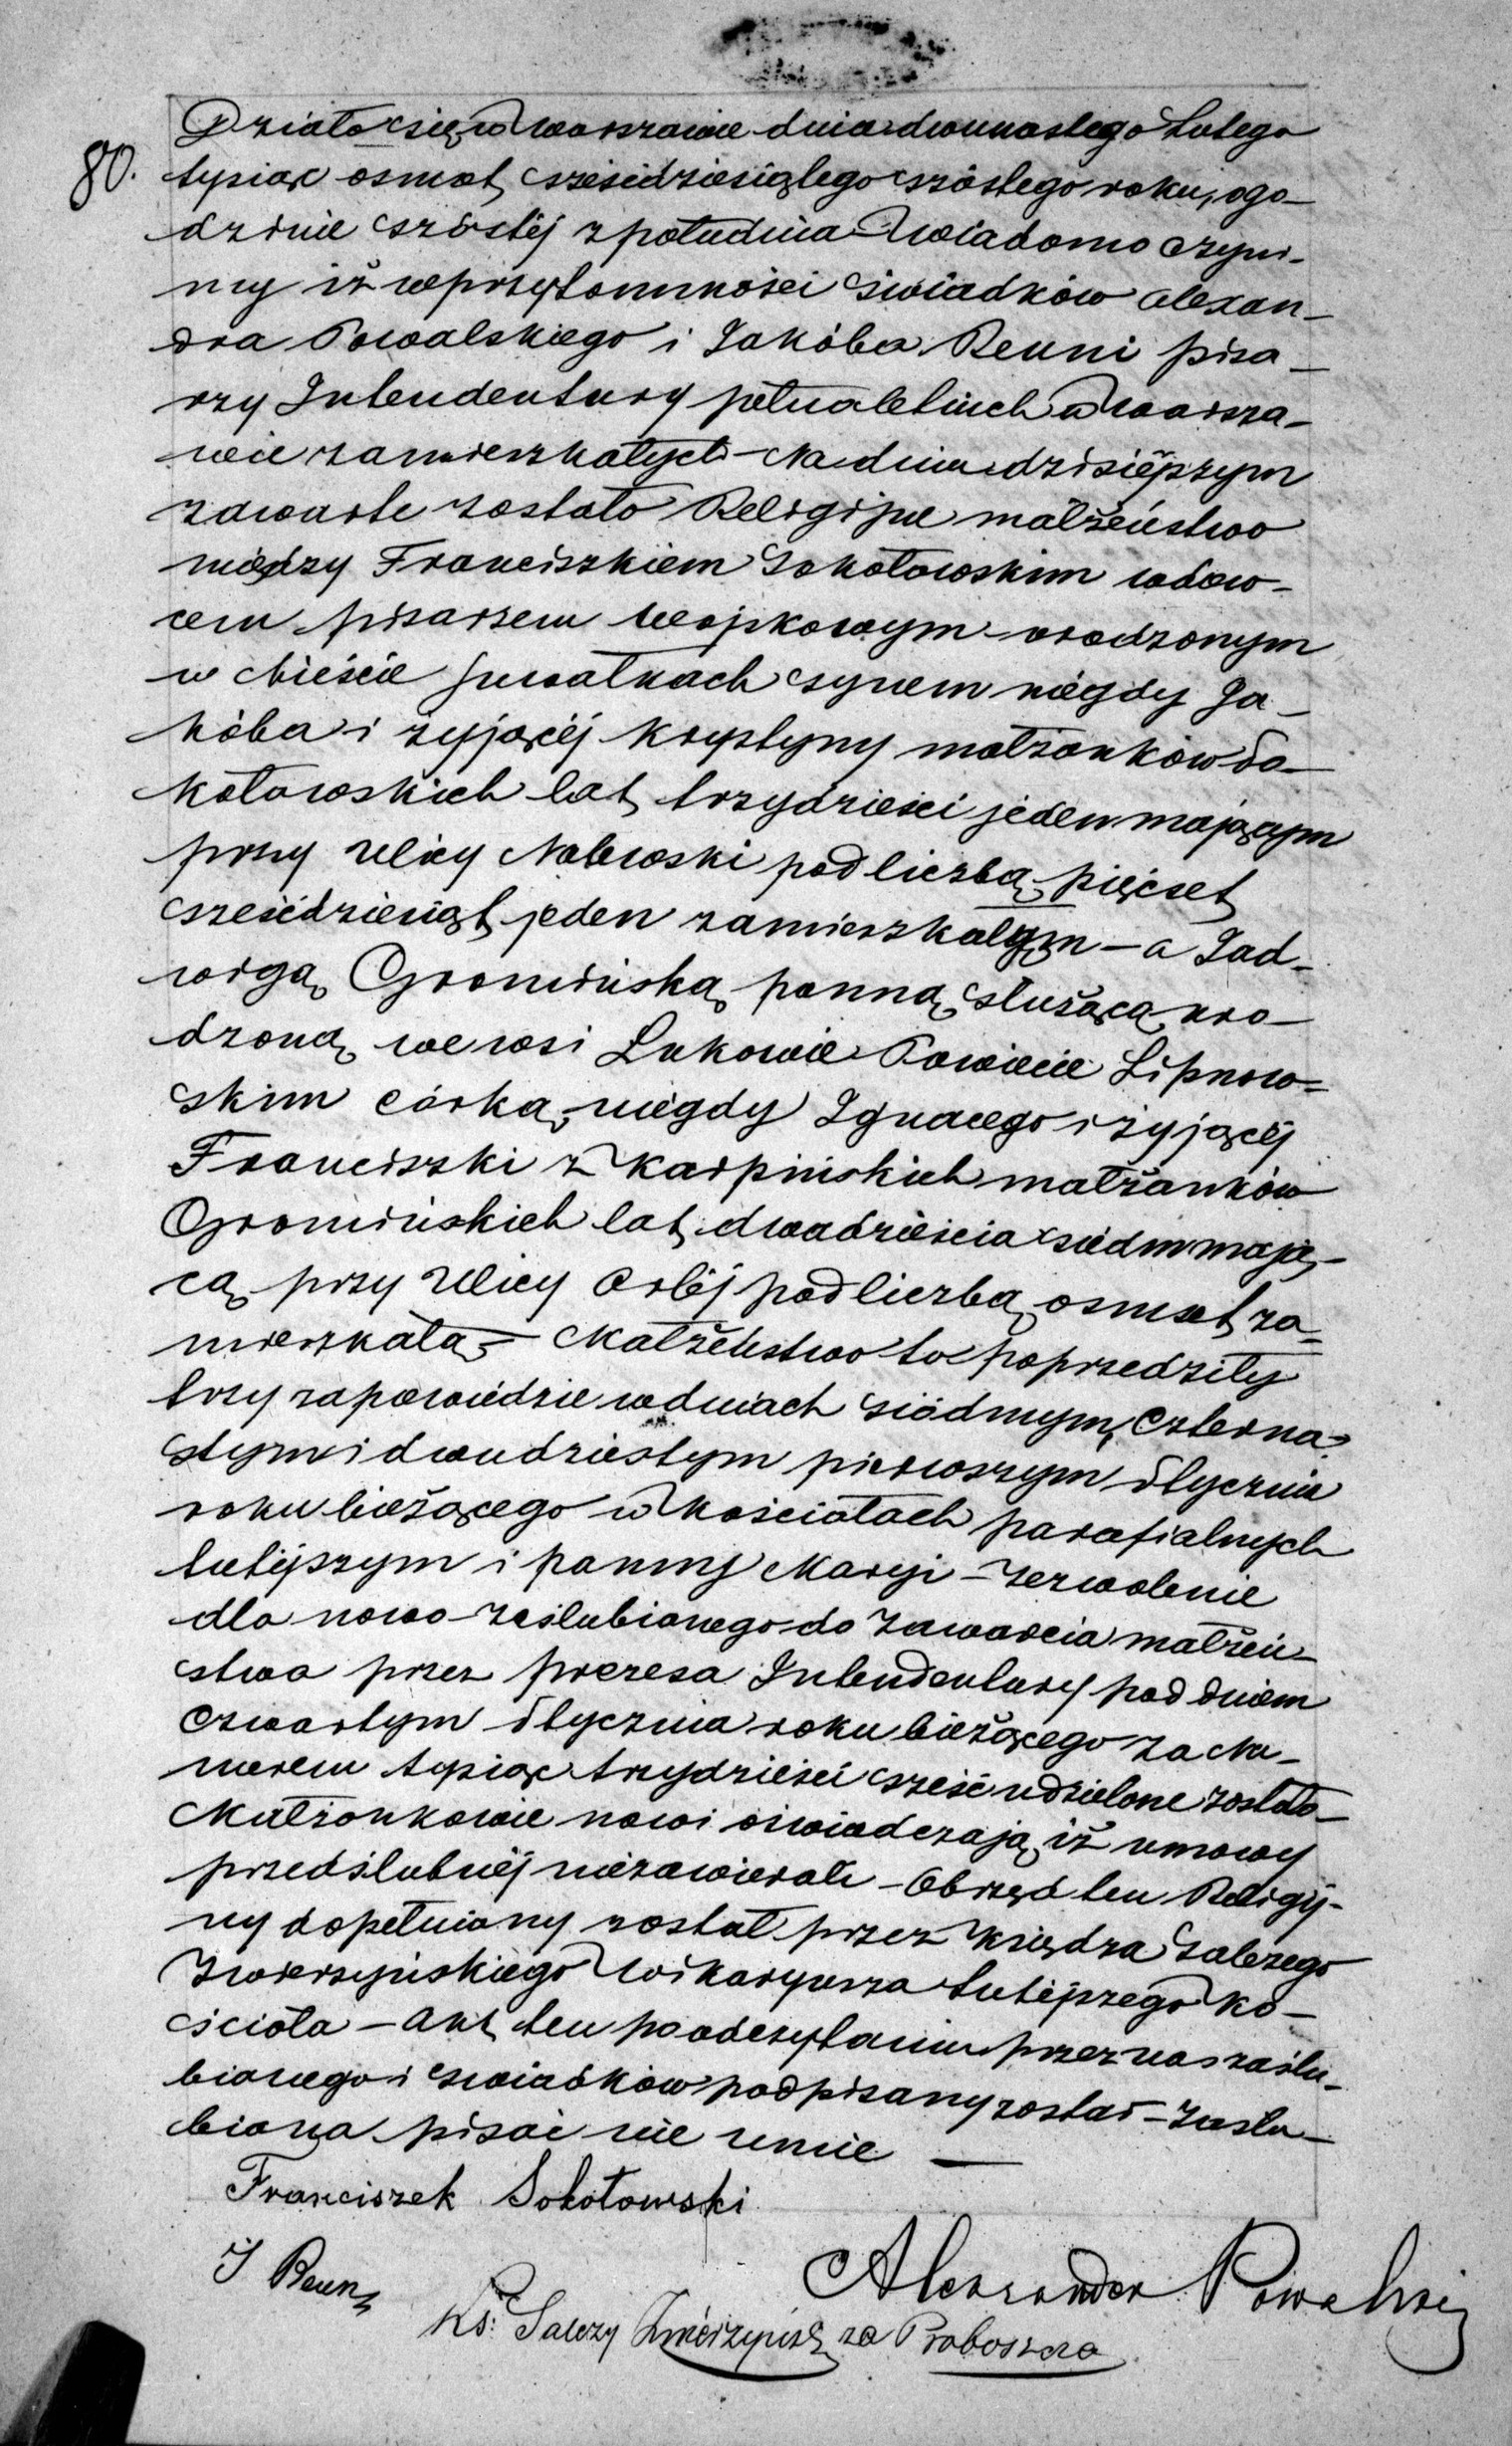 80.
Działo się w Warszawie dnia dwunastego Lutego
tysiąc osmset sześćdziesiątego szóstego roku, o go-
dzinie szóstéj z południa – Wiadomo czyni-
my iż w przytomności świadków Alexan-
dra Powalskiego i Jakóba Reuni pisa-
rzy Intendentury pełnoletnich w Warsza-
wie zamieszkałych – Na dniu dzisiéjszym
zawarte zostało Religijne małżeństwo
między Franciszkiem Sokołowskim wdow-
cem pisarzem wojskowym urodzonym
w Mieście Suwałkach synem niegdy Ja-
kóba i żyjącéj Krystyny małżonków So-
kołowskich lat trzydzieści jeden mającym
przy ulicy Nalewski pod liczbą pięćset
sześćdziesiąt jeden zamieszkałym – a Jad-
wigą Gromińską panną służącą uro-
dzoną we wsi Łukowie Powiecie Lipnow-
skim córką niegdy Ignacego i żyjącéj
Franciszki z Karpińskich małżonków
Gromińskich lat dwadzieścia siedm mają-
cą przy ulicy Orléj pod liczbą osmset za-
mieszkałą – Małżeństwo to poprzedziły
trzy zapowiedzie w dniach siódmym, czterna-
stym i dwudziestym pierwszym Stycznia
roku bieżącego w kościołach parafialnych
tutéjszym i panny Maryi – Zezwolenie
dla nowo-zaślubionego do zawarcia małżeń-
stwa przez prezesa Intendentury pod dniem
czwartym Stycznia roku bieżącego za Nu-
merem tysiąc trzydzieści sześć udzielone zostało
Małżonkowie nowi oświadczają, iż umowy
przedślubnéj niezawierali – Obrzęd ten Religij-
ny dopełniony został przez Księdza Salezego
Zwierzyńskiego Wikaryusza tutéjszego ko-
ścioła – Akt ten po odczytaniu przez nas zaślu-
bionego i świadków podpisany został – Zaślu-
biona pisać nie umie –
Franciszek Sokołowski
J Reuni
Alexander Powalski
Ks: Salezy Zwierzyński za Proboszcza